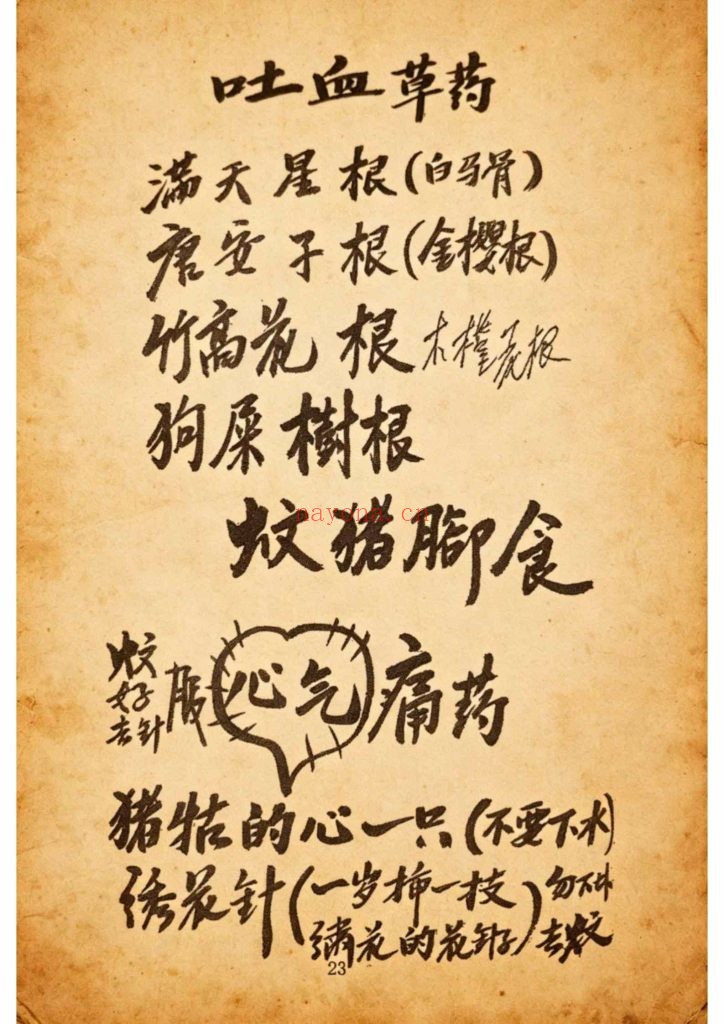 吐血草药
满天星根(白马骨)
唐安子根(金樱根)
竹高花根 木槿花根
狗屎樹根
nayona.cn
蚊猪腳食
蚊好去針服
心气痛药
猪牯的心一只(不要下水)
绣花針(一岁揷一枝绣花的花針子)勿下水去蚊
23